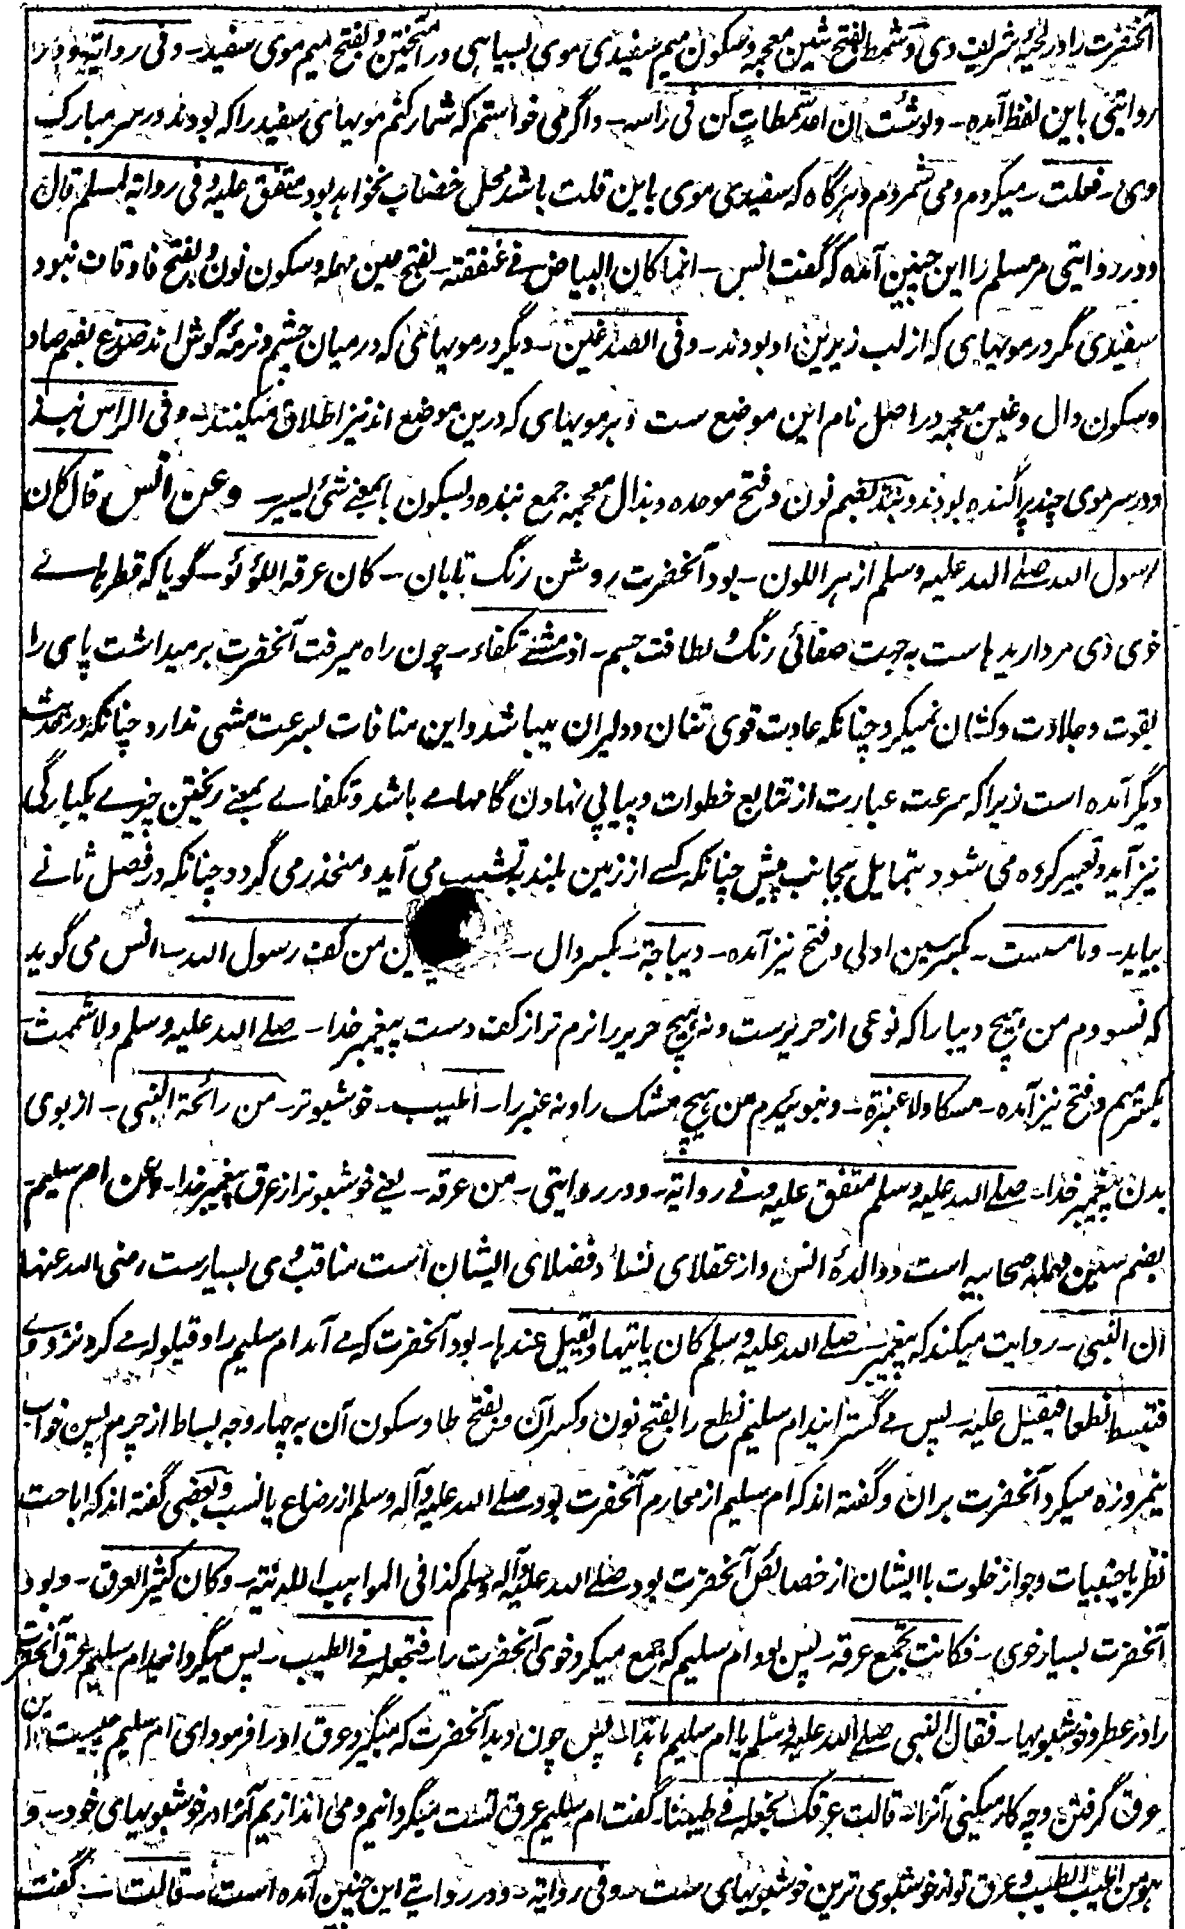 آنحضرت را در لحیه شریف وی و شمط بفتح شین معجمه و سکون میم سفیدی موی بسیاهی در آمیختن و بفتح میم موی سفید ـ وفی روایة و در
روایتی باین لفظ آمده ـ ولوشئت ان اعد شمطات کن فی راسه ـ و اگر می خواستم که شمار کنم مویهای سفید را که بودند در سر مبارک
وی ـ فعلت ـ میکردم و می شمردم و هرگاه که سفیدی موی باین قلت باشد محل خضاب نخواهد بود متفق علیه وفی روایة لمسلم قال
و در روایتی مر مسلم را این چنین آمده که گفت انس ـ انما کان البیاض فے عنفقته ـ بفتح عین مهمله و سکون نون و بفتح فا و قاف نبود
سفیدی مگر در مویهای که از لب زیرین او بودند ـ وفی الصدغین ـ دیگر در مویهائی که در میان چشم و نرمهٔ گوش اند صدغ بضم صاد
و سکون دال و غین معجمه در اصل نام این موضع ست و بر مویهای که درین موضع اند نیز اطلاق میکنند ـ وفی الراس نبذ
و در سر موی چند پراگنده بودند و نبذ بضم نون و فتح موحده و بذال معجمه جمع نبذه و بسکون با بمعنے شئ یسیر ـ وعن انس قال کان
رسول الله صلے الله علیه وسلم ازهر اللون ـ بود آنحضرت روشن رنگ تابان ـ کان عرقه اللؤلؤ ـ گویا که قطرهاے
خوی وی مرواریدهاست به جهت صفائی رنگ و لطافت جسم ـ اذ مشے تکفاء ـ چون راه میرفت آنحضرت بر میداشت پای را
بقوت و جلادت و کشان نمیکرد چنانکه عادت قوی تنان و دلیران میباشد و این منافات بسرعت مشی ندارد چنانکه در حدیث
دیگر آمده است زیرا که سرعت عبارت از تتابع خطوات و پیاپی نهادن گامهاے باشد و تکفاے بمعنے ریختن چیزے یکبارگی
نیز آید و تعبیر کرده می شود بتمایل بجانب پیش چنانکه کسے از زمین بلند به نشیب می آید و منحدر می گردد چنانکه در فصل ثانے
بیاید ـ وما مسست ـ بکسر سین اولی و فتح نیز آمده ـ دیباجة ـ بکسر دال ـ من کف رسول الله ـ انس می گوید
که نسودم من هیچ دیبا را که نوعی از حریرست و نه هیچ حریر را نرم تر از کف دست پیغمبر خدا ـ صلے الله علیه وسلم ولا شممت
بکسر میم و فتح نیز آمده ـ مسکا ولا عنبرة ـ و نبوئیدم من هیچ مشک را و نه عنبر را ـ اطیب ـ خوشبوتر ـ من رائحة النبی ـ از بوی
بدن پیغمبر خدا ـ صلے الله علیه وسلم متفق علیه وفے روایة ـ و در روایتی ـ من عرقه ـ یعنے خوشبوتر از عرق پیغمبر خدا ـ وعن ام سلیم
بضم سین مهمله صحابیه است و والدهٔ انس و از عقلای نساء و فضلای ایشان است مناقب وی بسیارست رضی الله عنها
ان النبی ـ روایت میکند که پیغمبر ـ صلے الله علیه وسلم کان یاتیها و یقیل عندها ـ بود آنحضرت که مے آمد ام سلیم را و قیلوله مے کرد نزد وے
فتبسط نطعا فیقیل علیه ـ پس مے گسترانید ام سلیم نطع را بفتح نون و کسر آن و بفتح طا و سکون آن به چهار وجه بساط از چرم پس خواب
نیمروزه میکرد آنحضرت بران و گفته اند که ام سلیم از محارم آنحضرت بود صلے الله علیه وآله وسلم از رضاع یا نسب و بعضی گفته اند که اباحت
نظر باجنبیات و جواز خلوت با ایشان از خصائص آنحضرت بود صلے الله علیه وآله وسلم کذا فی المواهب اللدنیة ـ وکان کثیر العرق ـ و بود
آنحضرت بسیار خوی ـ فکانت تجمع عرقه ـ پس بود ام سلیم که جمع میکرد خوی آنحضرت را ـ فتجعله فے الطیب ـ پس میگردانید ام سلیم عرق آنحضرت
را در عطر و خوشبویها ـ فقال النبی صلے الله علیه وسلم یا ام سلیم ما هذا ـ پس چون دید آنحضرت که میگیرد عرق او را فرمود ای ام سلیم چیست این
عرق گرفتن و چه کار میکنی آنرا ـ قالت عرقک نجعله فے طیبنا ـ گفت ام سلیم عرق تست میگردانیم و می اندازیم آنرا در خوشبویهای خود ـ و
هو من اطیب الطیب و عرق تو از خوشبوی ترین خوشبویهای ست ـ وفی روایة ـ و در روایتے این چنین آمده است ـ قالت ـ گفت